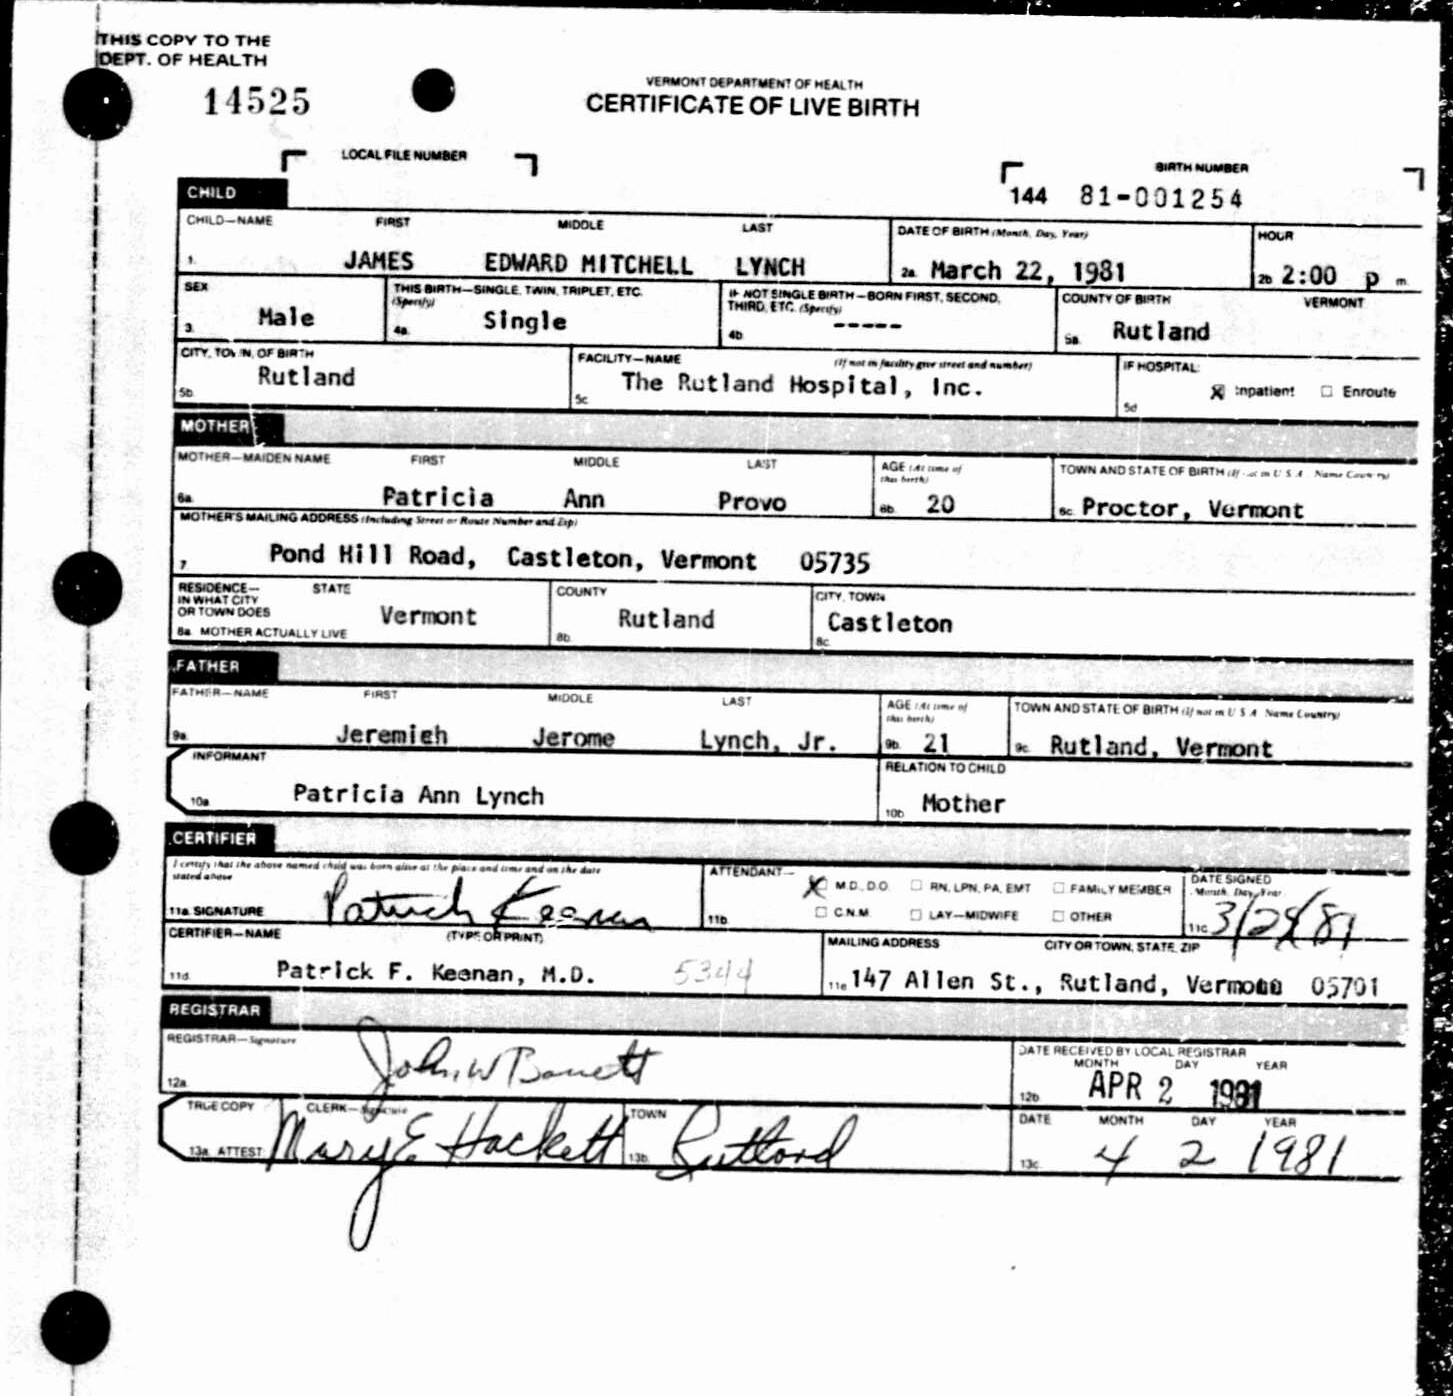 THIS COPY TO THE
DEPT. OF HEALTH
14525
VERMONT DEPARTMENT OF HEALTH
CERTIFICATE OF LIVE BIRTH
LOCAL FILE NUMBER
BIRTH NUMBER
144 81-001254
CHILD
CHILD—NAME FIRST MIDDLE LAST DATE OF BIRTH (Month, Day, Year) HOUR
1. JAMES EDWARD MITCHELL LYNCH 2a. March 22, 1981 2b 2:00 p m.
SEX THIS BIRTH—SINGLE, TWIN, TRIPLET, ETC. (Specify) IF NOT SINGLE BIRTH—BORN FIRST, SECOND, THIRD, ETC. (Specify) COUNTY OF BIRTH VERMONT
3. Male 4a. Single 4b. ----- 5a. Rutland
CITY, TOWN, OF BIRTH FACILITY—NAME (If not in facility give street and number) IF HOSPITAL:
5b. Rutland 5c. The Rutland Hospital, Inc. 5d ☒ Inpatient ☐ Enroute
MOTHER
MOTHER—MAIDEN NAME FIRST MIDDLE LAST AGE (At time of this birth) TOWN AND STATE OF BIRTH (If not in U S A Name Country)
6a. Patricia Ann Provo 6b. 20 6c. Proctor, Vermont
MOTHER'S MAILING ADDRESS (Including Street or Route Number and Zip)
7. Pond Hill Road, Castleton, Vermont 05735
RESIDENCE— STATE COUNTY CITY, TOWN
IN WHAT CITY
OR TOWN DOES Vermont Rutland Castleton
8a. MOTHER ACTUALLY LIVE 8b. 8c.
FATHER
FATHER—NAME FIRST MIDDLE LAST AGE (At time of this birth) TOWN AND STATE OF BIRTH (If not in U S A Name Country)
9a. Jeremieh Jerome Lynch, Jr. 9b. 21 9c. Rutland, Vermont
INFORMANT RELATION TO CHILD
10a. Patricia Ann Lynch 10b. Mother
CERTIFIER
I certify that the above named child was born alive at the place and time and on the date
stated above
ATTENDANT— ☒ M.D., D.O. ☐ RN, LPN, PA, EMT ☐ FAMILY MEMBER DATE SIGNED Month, Day, Year
11a. SIGNATURE Patrick Keenan 11b. ☐ C.N.M. ☐ LAY—MIDWIFE ☐ OTHER 11c.
CERTIFIER—NAME (TYPE OR PRINT) MAILING ADDRESS CITY OR TOWN, STATE, ZIP
11d. Patrick F. Keenan, M.D. 5344 11e 147 Allen St., Rutland, Vermont 05701
REGISTRAR
REGISTRAR—Signature DATE RECEIVED BY LOCAL REGISTRAR
MONTH DAY YEAR
12a. John W Barrett 12b. APR 2 1981
TRUE COPY CLERK—Signature TOWN DATE MONTH DAY YEAR
13a. ATTEST: Mary E Hackett 13b. Rutland 13c. 4 2 1981